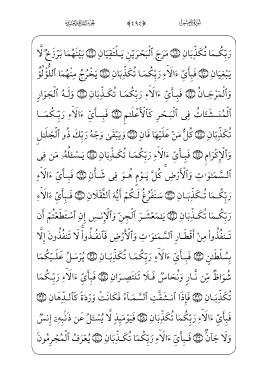 رَبِّكُمَا تُكَذِّبَانِ ۝ مَرَجَ ٱلْبَحْرَيْنِ يَلْتَقِيَانِ ۝ بَيْنَهُمَا بَرْزَخٌ لَّا
يَبْغِيَانِ ۝ فَبِأَىِّ ءَالَآءِ رَبِّكُمَا تُكَذِّبَانِ ۝ يَخْرُجُ مِنْهُمَا ٱللُّؤْلُؤُ
وَٱلْمَرْجَانُ ۝ فَبِأَىِّ ءَالَآءِ رَبِّكُمَا تُكَذِّبَانِ ۝ وَلَهُ ٱلْجَوَارِ
ٱلْمُنشَـَٔاتُ فِى ٱلْبَحْرِ كَٱلْأَعْلَـٰمِ ۝ فَبِأَىِّ ءَالَآءِ رَبِّكُمَا
تُكَذِّبَانِ ۝ كُلُّ مَنْ عَلَيْهَا فَانٍ ۝ وَيَبْقَىٰ وَجْهُ رَبِّكَ ذُو ٱلْجَلَـٰلِ
وَٱلْإِكْرَامِ ۝ فَبِأَىِّ ءَالَآءِ رَبِّكُمَا تُكَذِّبَانِ ۝ يَسْـَٔلُهُۥ مَن فِى
ٱلسَّمَـٰوَٰتِ وَٱلْأَرْضِ ۚ كُلَّ يَوْمٍ هُوَ فِى شَأْنٍ ۝ فَبِأَىِّ ءَالَآءِ
رَبِّكُمَا تُكَذِّبَانِ ۝ سَنَفْرُغُ لَكُمْ أَيُّهَ ٱلثَّقَلَانِ ۝ فَبِأَىِّ ءَالَآءِ
رَبِّكُمَا تُكَذِّبَانِ ۝ يَـٰمَعْشَرَ ٱلْجِنِّ وَٱلْإِنسِ إِنِ ٱسْتَطَعْتُمْ أَن
تَنفُذُوا۟ مِنْ أَقْطَارِ ٱلسَّمَـٰوَٰتِ وَٱلْأَرْضِ فَٱنفُذُوا۟ ۚ لَا تَنفُذُونَ إِلَّا
بِسُلْطَـٰنٍ ۝ فَبِأَىِّ ءَالَآءِ رَبِّكُمَا تُكَذِّبَانِ ۝ يُرْسَلُ عَلَيْكُمَا
شُوَاظٌ مِّن نَّارٍ وَنُحَاسٌ فَلَا تَنتَصِرَانِ ۝ فَبِأَىِّ ءَالَآءِ رَبِّكُمَا
تُكَذِّبَانِ ۝ فَإِذَا ٱنشَقَّتِ ٱلسَّمَآءُ فَكَانَتْ وَرْدَةً كَٱلدِّهَانِ ۝
فَبِأَىِّ ءَالَآءِ رَبِّكُمَا تُكَذِّبَانِ ۝ فَيَوْمَئِذٍ لَّا يُسْـَٔلُ عَن ذَنۢبِهِۦٓ إِنسٌ
وَلَا جَآنٌّ ۝ فَبِأَىِّ ءَالَآءِ رَبِّكُمَا تُكَذِّبَانِ ۝ يُعْرَفُ ٱلْمُجْرِمُونَ